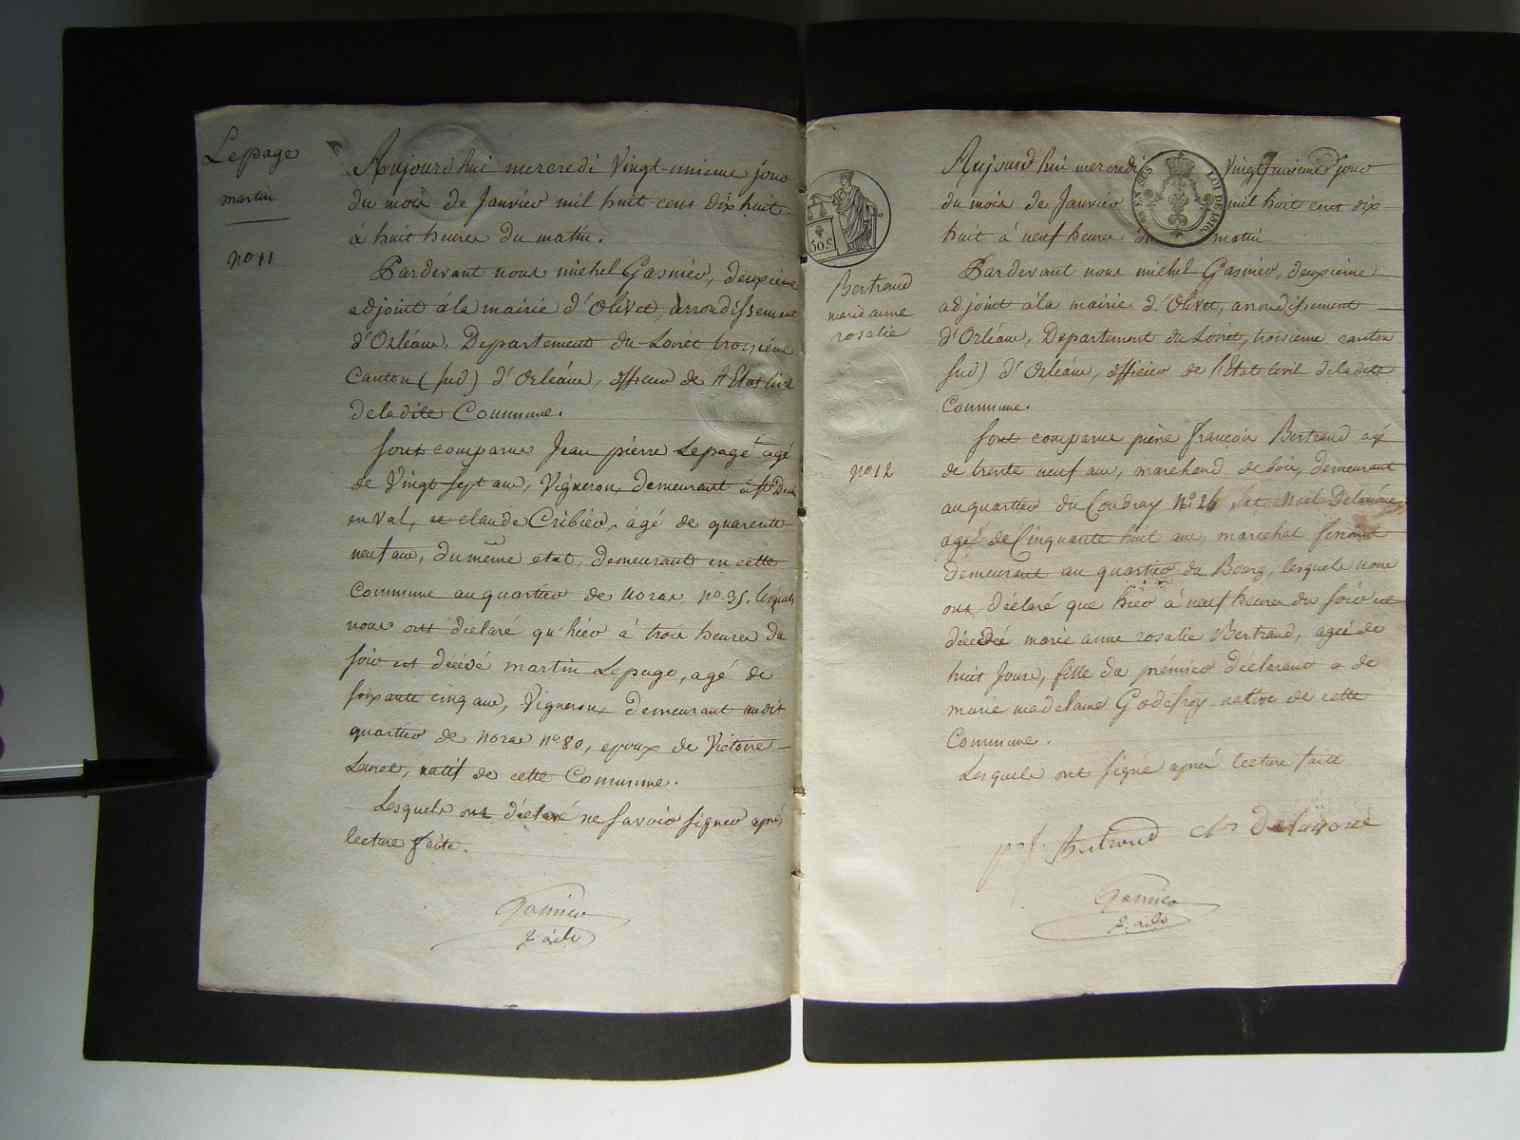 Lepage
martin
no 11
Aujourd'hui mercredi Vingt-unieme jour
du mois de Janvier mil huit cent dix huit
à huit heures du matin.
Pardevant nous michel Gasnier, deuxieme
adjoint à la mairie d'Olivet, arrondissement
d'Orléans, Departement du Loiret troisieme
Canton (sud) d'Orléans, officier de l'Etat Civil
de ladite Commune.
sont comparus Jean pierre Lepage agé
de Vingt sept ans, Vigneron, demeurant à St Denis
en Val, et claude Cribier, agé de quarente
neuf ans, du même etat, demeurant en cette
Commune au quartier de noras no. 35. lesquels
nous ont declaré qu'hier à trois heures du
soir est décédé martin Lepage, agé de
soixante cinq ans, Vigneron, demeurant audit
quartier de noras no 80, epoux de Victoire
natif de cette Commune.
Lesquels ont déclaré ne savoir signer après
lecture faite.
Gasnier
Bertrand
marie anne
rosalie
no 12
50 C
LOI DE
Aujourd'hui mercredi Vingt unieme jour
du mois de Janvier mil huit cent dix
huit à neuf heures du matin
Pardevant nous michel Gasnier, deuxieme
adjoint à la mairie d'Olivet, arrondissement
d'Orléans, Departement du Loiret, troisieme canton
sud) d'Orléans, officier de l'Etat Civil de ladite
Commune.
sont comparus pierre françois Bertrand agé
de trente neuf ans, marchand de bois, demeurant
au quartier du Coudray No 26, et
agé de Cinquante huit ans, marechal ferrant
demeurant au quartier du Bourg, lesquels nous
ont déclaré que hier à neuf heures du soir est
décédée marie anne rosalie Bertrand, agée de
huit Jours, fille du premier déclarant & de
marie madelaine Godefroy native de cette
Commune.
Lesquels ont signé après lecture faite
p. f. Bertrand
Gasnier